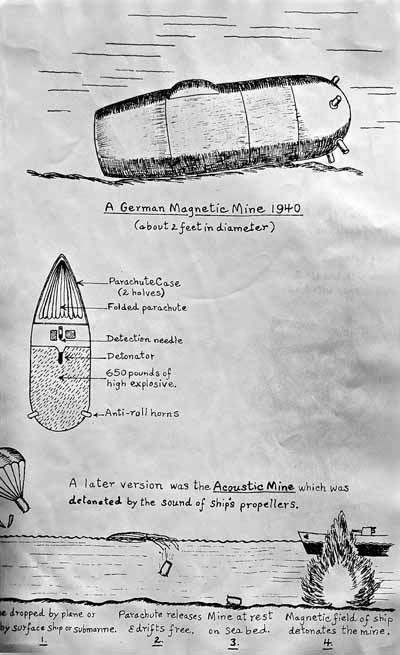 A German Magnetic Mine 1940
(about 2 feet in diameter)
Parachute Case
(2 halves)
Folded parachute
Detection needle
Detonator
650 pounds of
high explosive.
Anti-roll horns
A later version was the Acoustic Mine which was
detonated by the sound of ship's propellers.
dropped by plane or
by surface ship or submarine.
1.
Parachute releases
& drifts free.
2.
Mine at rest
on sea bed.
3.
Magnetic field of ship
detonates the mine.
4.